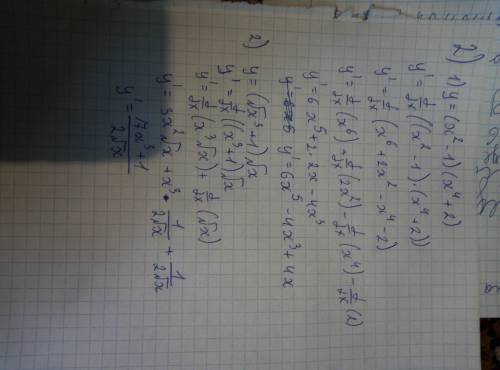 2) 1) y = (x² - 1)(x⁴ + 2)
y' = d/dx ((x² - 1) · (x⁴ + 2))
y' = d/dx (x⁶ + 2x² - x⁴ - 2)
y' = d/dx (x⁶) + d/dx (2x²) - d/dx (x⁴) - d/dx (2)
y' = 6x⁵ + 2 · 2x - 4x³
y' = 6x⁵ - 4x³ + 4x
2)
y = (x³ + 1)√x
y' = d/dx ((x³ + 1)√x
y' = d/dx (x³√x) + d/dx (√x)
y' = 3x²√x + x³ · 1/2√x + 1/2√x
y' = 7x³ + 1/2√x